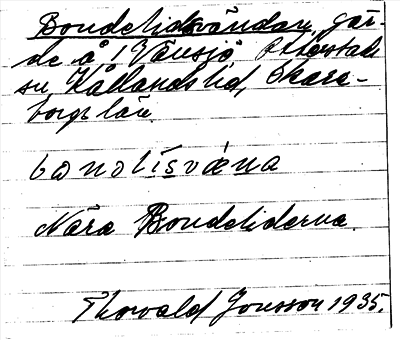 Bondelidsvändan, gär-
de å Vänsjö Otterstad
sn, Kållands hd, Skara-
borgs län.
bondlisvæna
Nära Bondeliderna.
Thorvald Jonsson 1935.